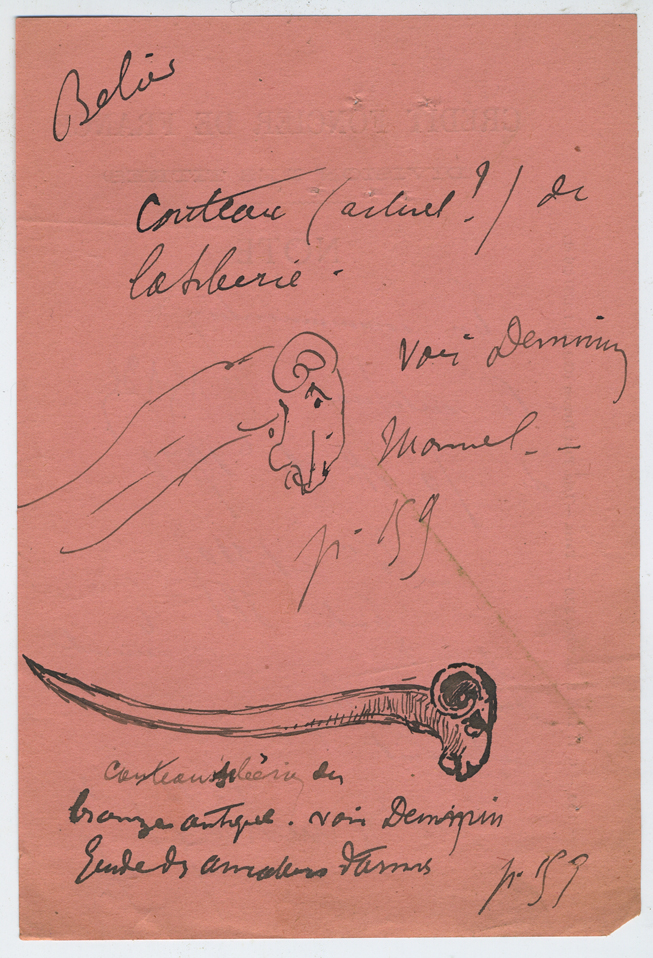 Belier
Couteau (actuel?) de
la Siberie.
Voir Demmin
Manuel - -
p. 159
Couteau sibérien en
bronze antique. voir Demmin
Guide des amateurs d'armes
p. 159